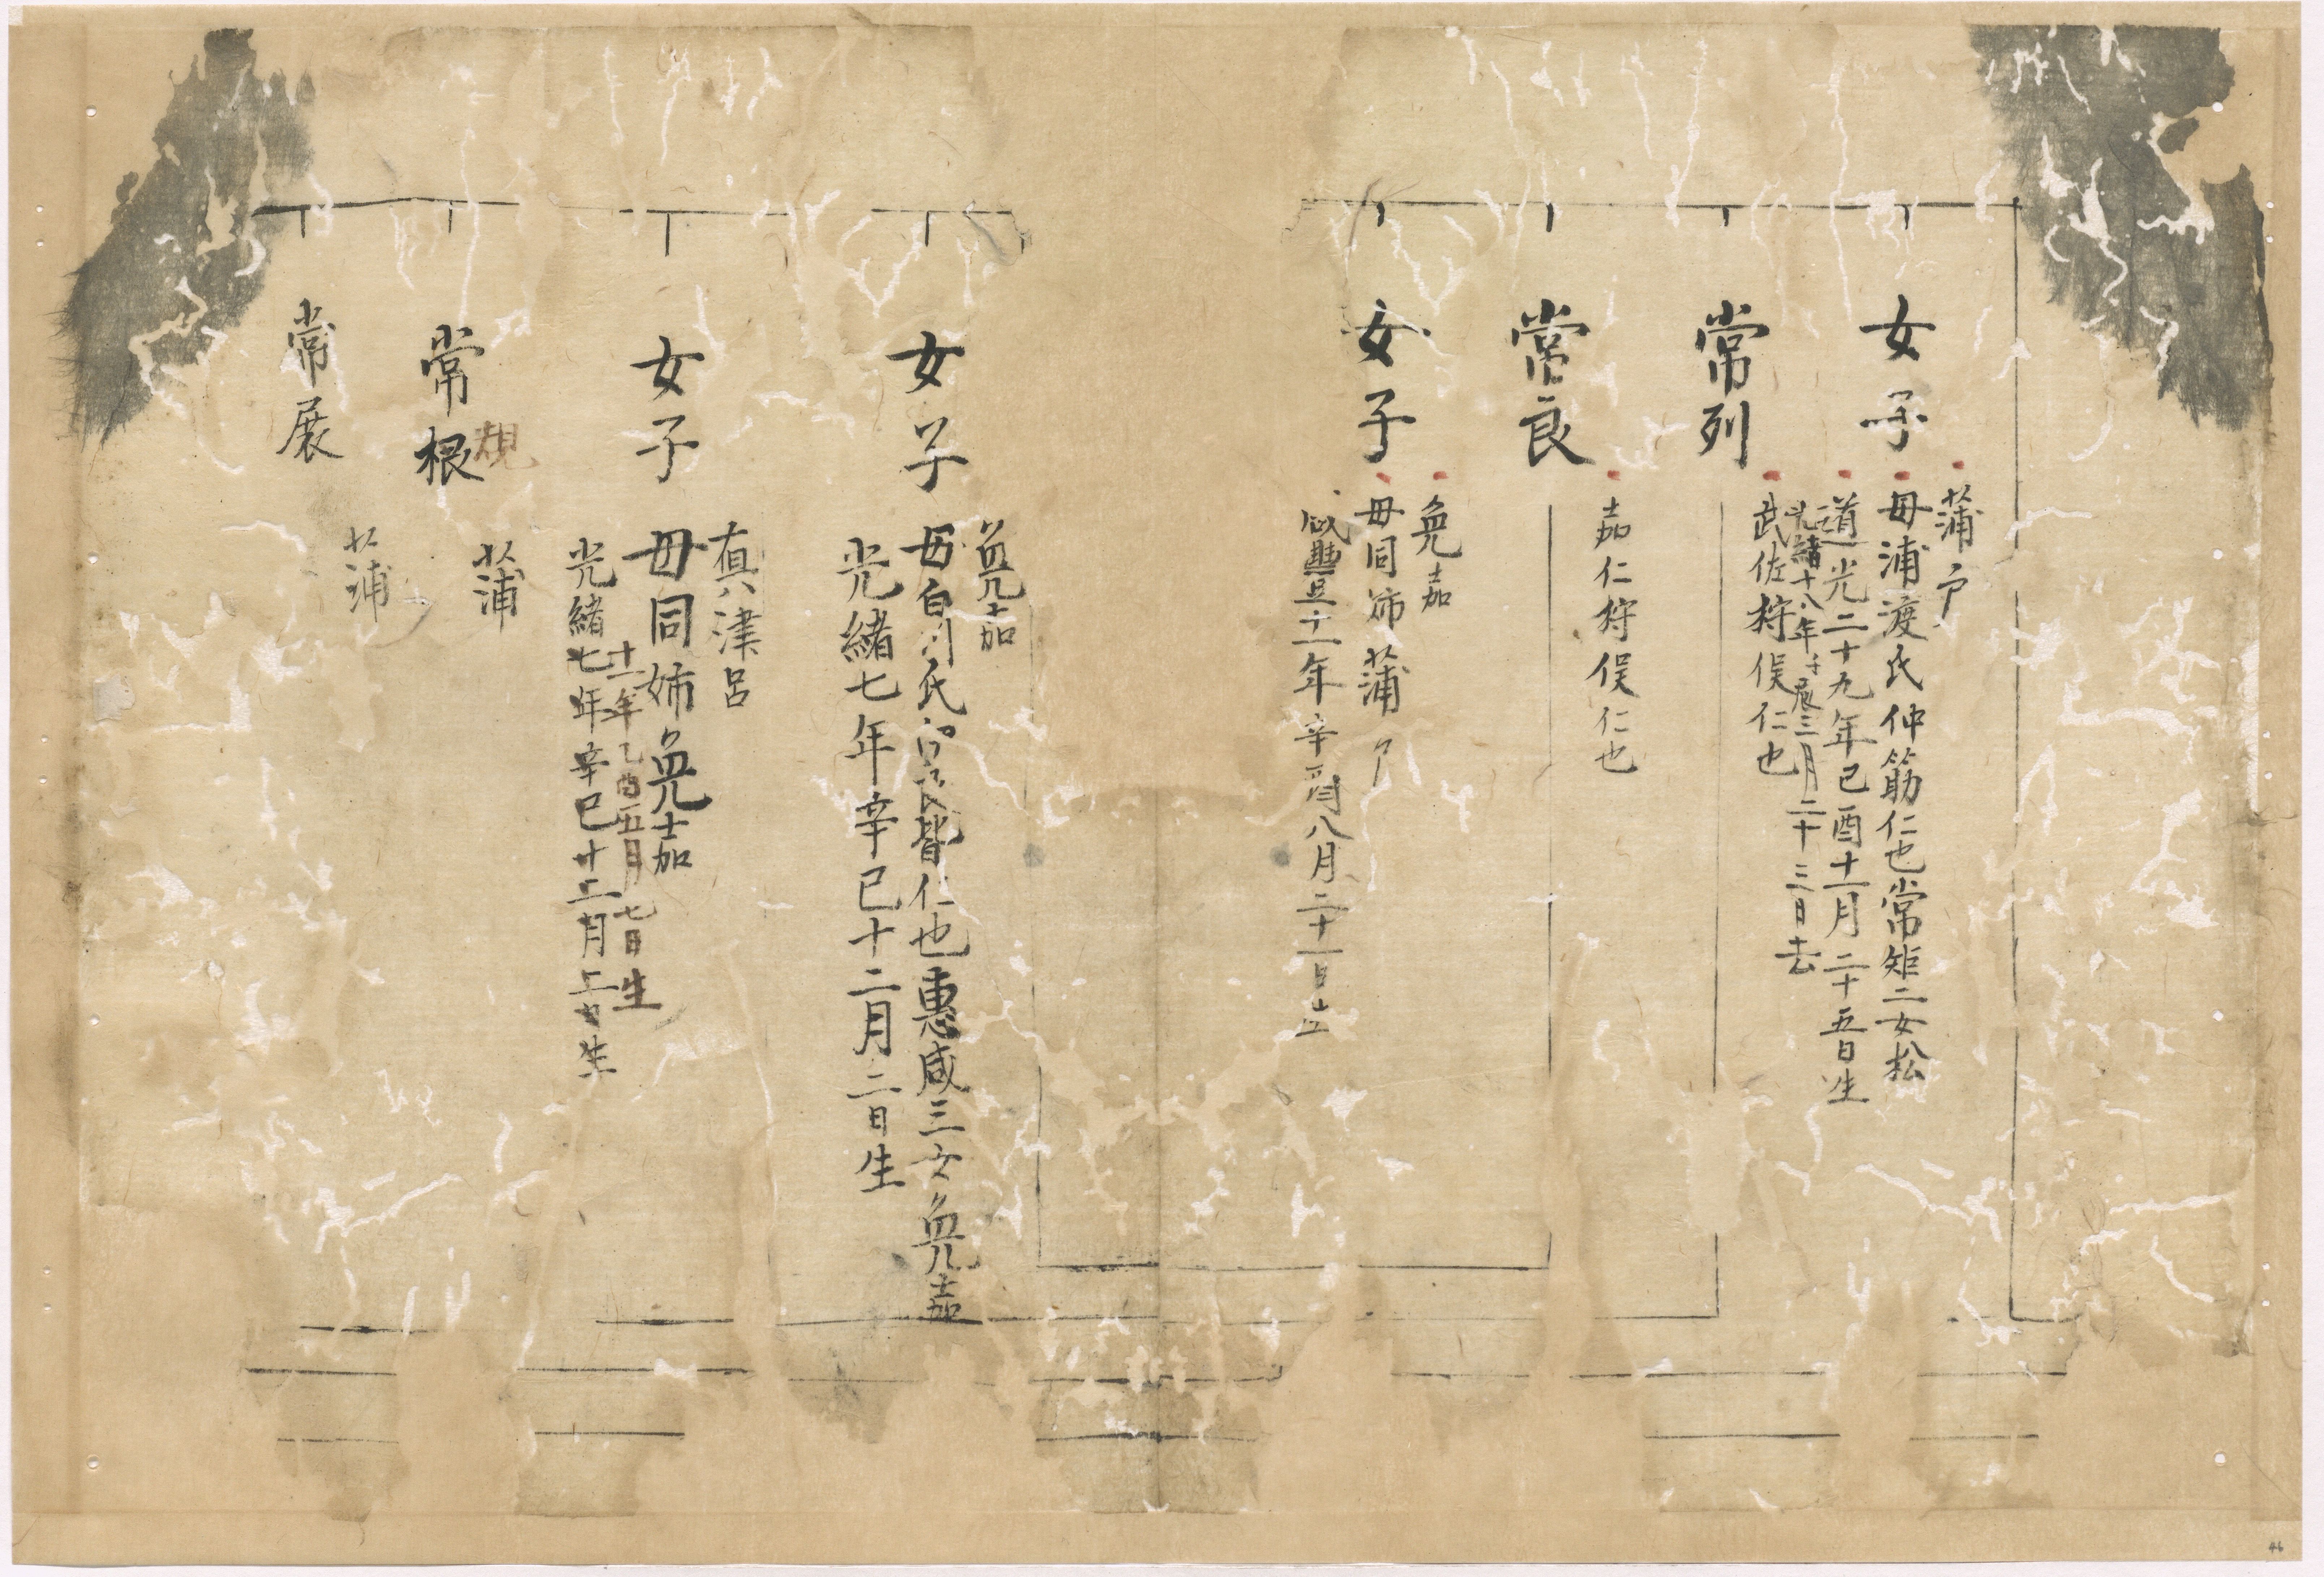 女子
蒲戸
母浦渡氏仲筋仁也常矩二女松
道光二十九年己酉十二月二十五日生
光緒十八年壬辰三月二十三日去
常列
武佐狩俣仁也
常良
嘉仁狩俣仁也
女子
免嘉
母同姉蒲戸
咸豊十一年辛酉八月二十一日生
女子
免嘉
母白川氏 皆仁也恵咸三女免嘉
光緒七年辛巳十二月二日生
女子
真津呂
母同姉免嘉
十一年乙酉五月七日生
光緒七年辛巳十二月二日生
常根
規
蒲
常展
蒲
46